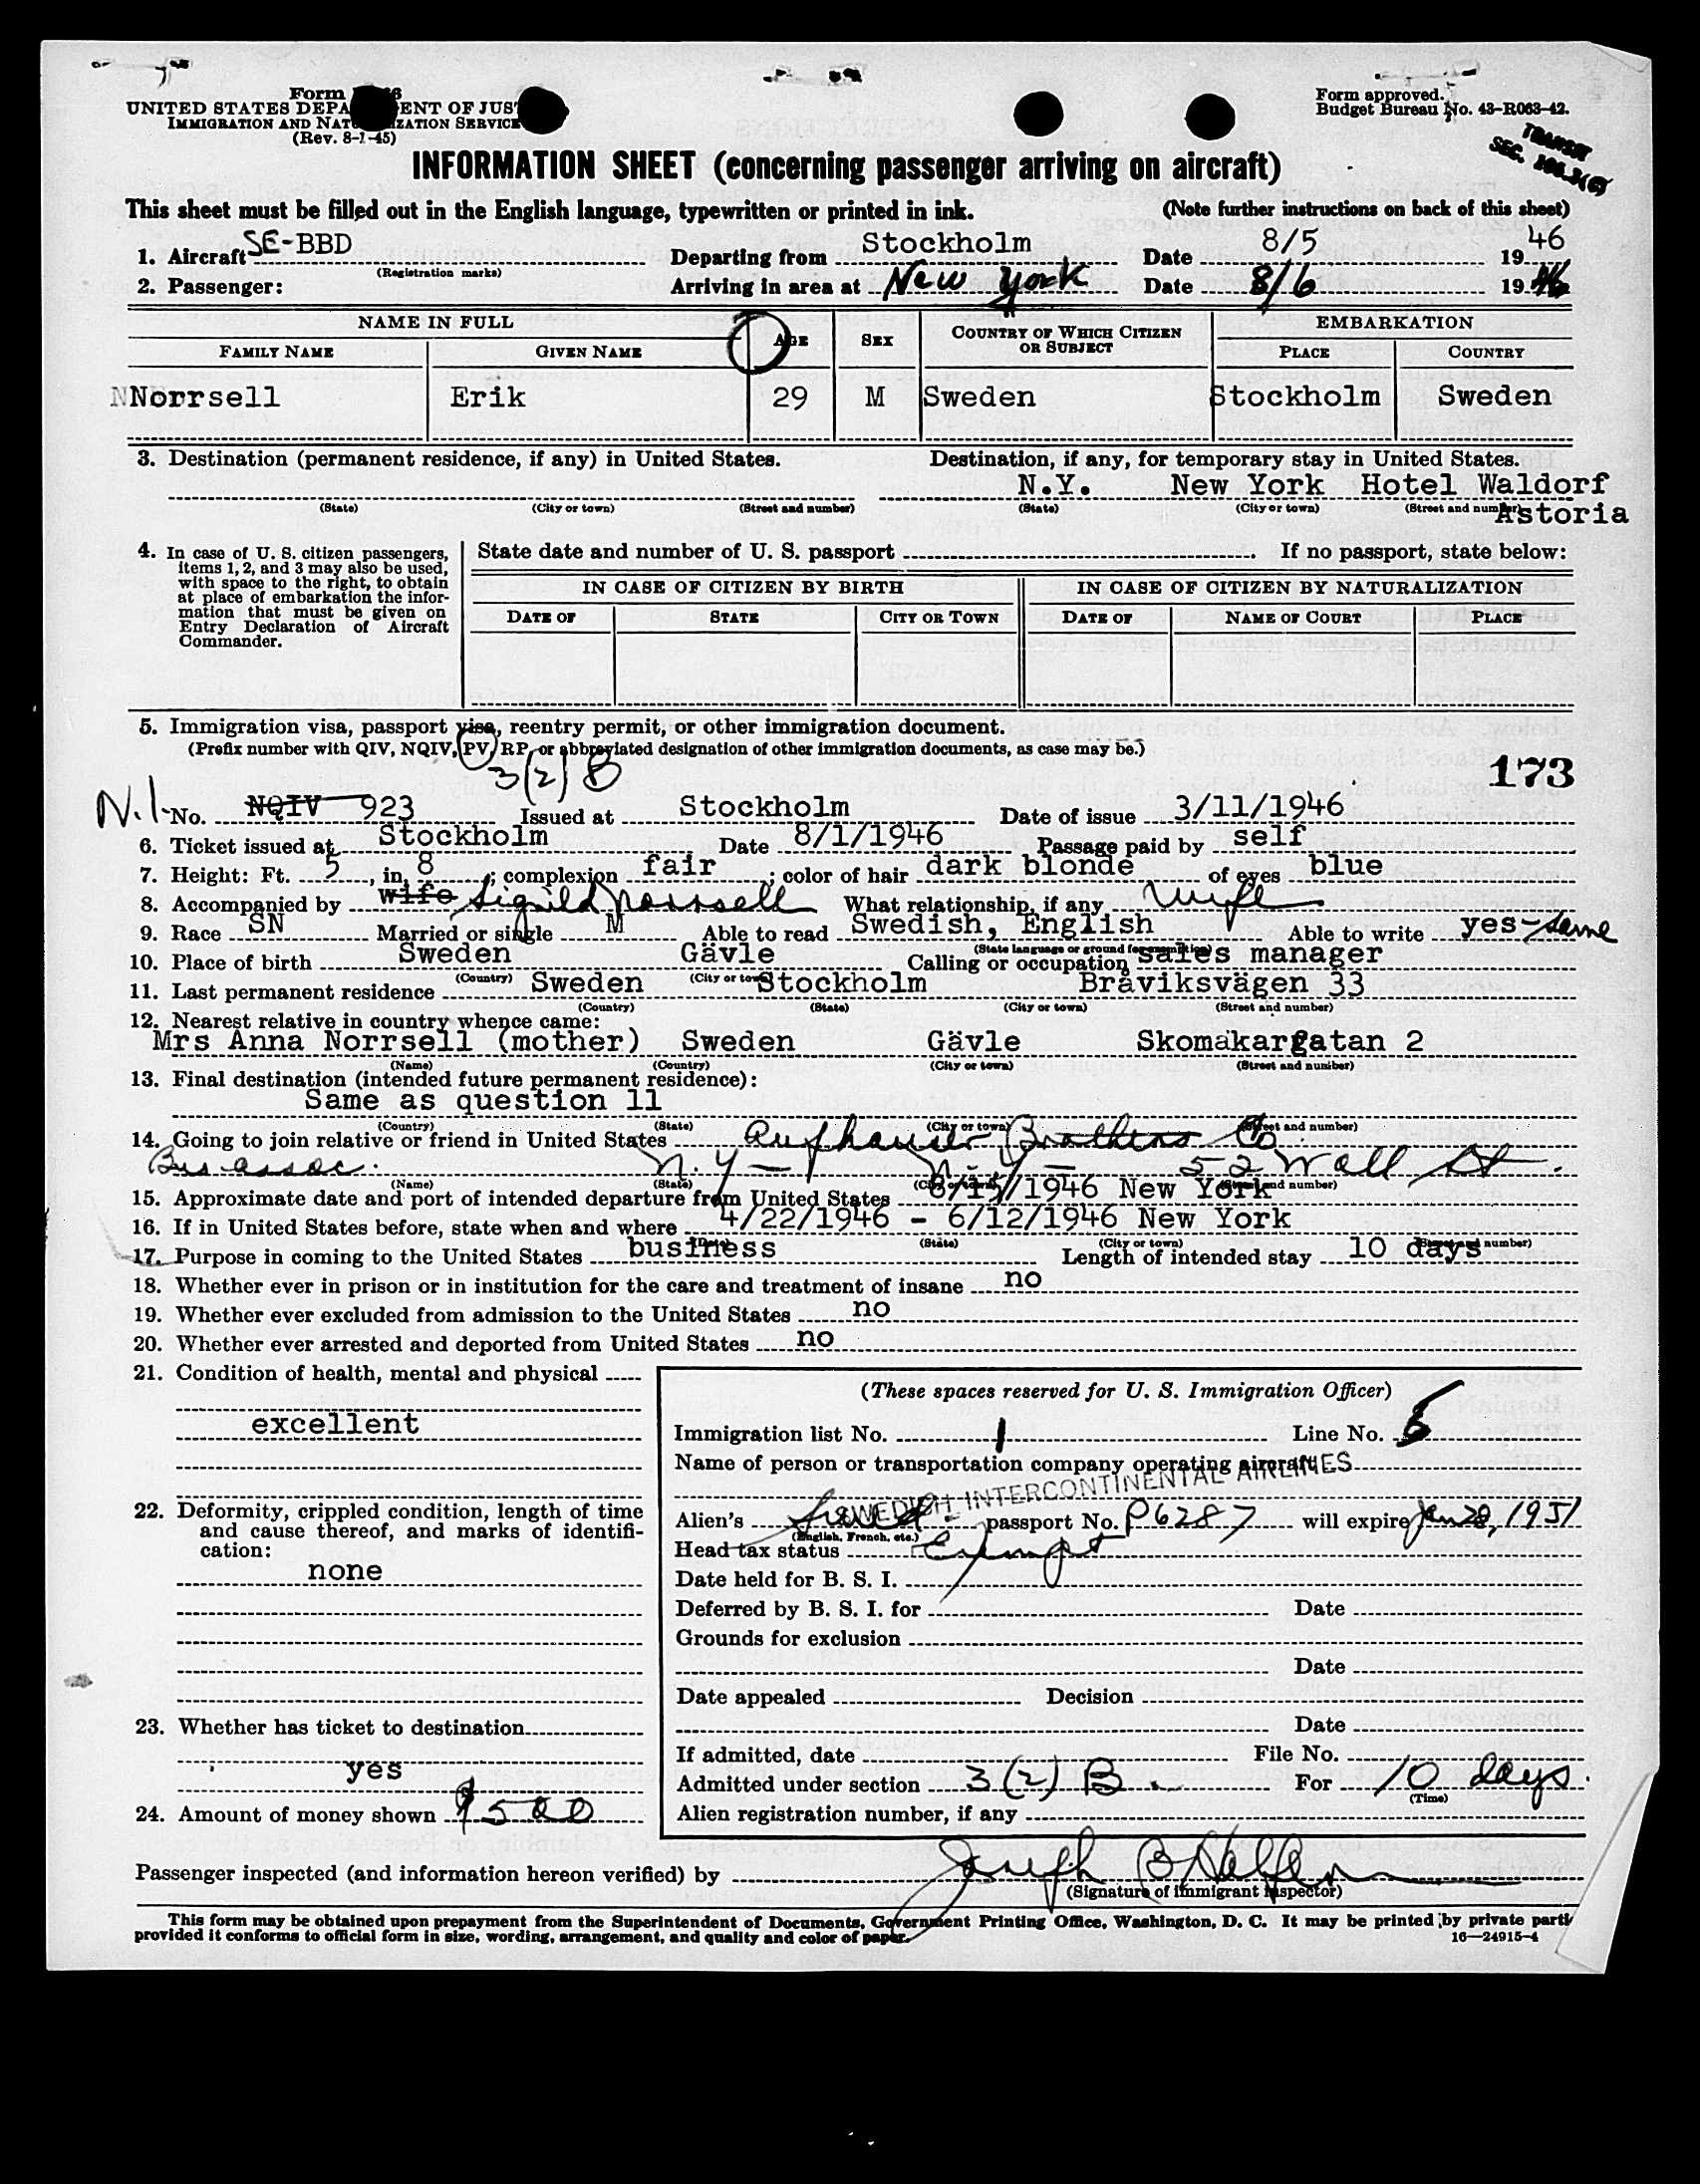 Form
UNITED STATES DEPA ENT OF JUS
IMMIGRATION AND NAT IZATION SERVICE
(Rev. 8-1-45)
Form approved.
Budget Bureau No. 43-R063-42.
TRANSIT
SEC.
INFORMATION SHEET (concerning passenger arriving on aircraft)
This sheet must be filled out in the English language, typewritten or printed in ink. (Note further instructions on back of this sheet)
1. Aircraft SE-BBD Departing from Stockholm Date 8/5 1946
(Registration marks)
2. Passenger: Arriving in area at New York Date 8/6 1946
NAME IN FULL AGE SEX COUNTRY OF WHICH CITIZEN OR SUBJECT EMBARKATION
FAMILY NAME GIVEN NAME PLACE COUNTRY
Norrsell Erik 29 M Sweden Stockholm Sweden
3. Destination (permanent residence, if any) in United States. Destination, if any, for temporary stay in United States.
N.Y. New York Hotel Waldorf
(State) (City or town) (Street and number) (State) (City or town) (Street and number) Astoria
4. In case of U. S. citizen passengers, items 1, 2, and 3 may also be used, with space to the right, to obtain at place of embarkation the information that must be given on Entry Declaration of Aircraft Commander.
State date and number of U. S. passport If no passport, state below:
IN CASE OF CITIZEN BY BIRTH IN CASE OF CITIZEN BY NATURALIZATION
DATE OF STATE CITY OR TOWN DATE OF NAME OF COURT PLACE
5. Immigration visa, passport visa, reentry permit, or other immigration document.
(Prefix number with QIV, NQIV, PV, RP, or abbreviated designation of other immigration documents, as case may be.)
3(2) B
173
N.I. No. NQIV 923 Issued at Stockholm Date of issue 3/11/1946
6. Ticket issued at Stockholm Date 8/1/1946 Passage paid by self
7. Height: Ft. 5, in. 8; complexion fair; color of hair dark blonde of eyes blue
8. Accompanied by wife Sigrild Norrsell What relationship, if any wife
9. Race SN Married or single M Able to read Swedish, English Able to write yes-same
(State language or ground for exemption)
10. Place of birth Sweden Gävle Calling or occupation sales manager
(Country) (City or town)
11. Last permanent residence Sweden Stockholm Bråviksvägen 33
(Country) (State) (City or town) (Street and number)
12. Nearest relative in country whence came:
Mrs Anna Norrsell (mother) Sweden Gävle Skomakargatan 2
(Name) (Country) (City or town) (Street and number)
13. Final destination (intended future permanent residence):
Same as question 11
(Country) (State) (City or town) (Street and number)
14. Going to join relative or friend in United States Aufhauser Brothers Co
Bus assoc. N.Y - N.Y - 52 Wall St.
(Name) (State) (City or town) (Street and number)
15. Approximate date and port of intended departure from United States 8/15/1946 New York
16. If in United States before, state when and where 4/22/1946 - 6/12/1946 New York
(Date) (State) (City or town) (Street and number)
17. Purpose in coming to the United States business Length of intended stay 10 days
18. Whether ever in prison or in institution for the care and treatment of insane no
19. Whether ever excluded from admission to the United States no
20. Whether ever arrested and deported from United States no
21. Condition of health, mental and physical
excellent
22. Deformity, crippled condition, length of time and cause thereof, and marks of identification:
none
23. Whether has ticket to destination
yes
24. Amount of money shown $500
(These spaces reserved for U. S. Immigration Officer)
Immigration list No. 1 Line No. 5
Name of person or transportation company operating aircraft
SWEDISH INTERCONTINENTAL AIRLINES
Alien's passport No. P6287 will expire Jan 28, 1951
(English, French, etc.)
Head tax status Exempt
Date held for B. S. I.
Deferred by B. S. I. for Date
Grounds for exclusion
Date
Date appealed Decision
Date
If admitted, date File No.
Admitted under section 3(2) B. For 10 days.
(Time)
Alien registration number, if any
Passenger inspected (and information hereon verified) by Joseph B
(Signature of immigrant inspector)
This form may be obtained upon prepayment from the Superintendent of Documents, Government Printing Office, Washington, D. C. It may be printed by private parti
provided it conforms to official form in size, wording, arrangement, and quality and color of paper. 16—24915-4